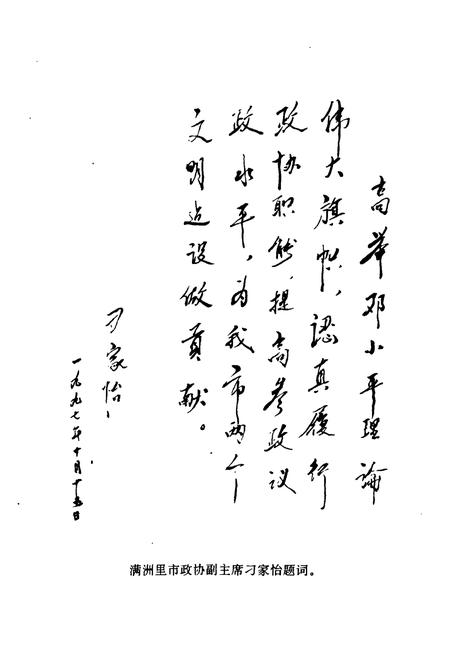 高举邓小平理论
伟大旗帜，认真履行
政协职能，提高参政议
政水平，为我市两个
文明建设做贡献。
刁家怡
一九九七年十月十五日
满洲里市政协副主席刁家怡题词。